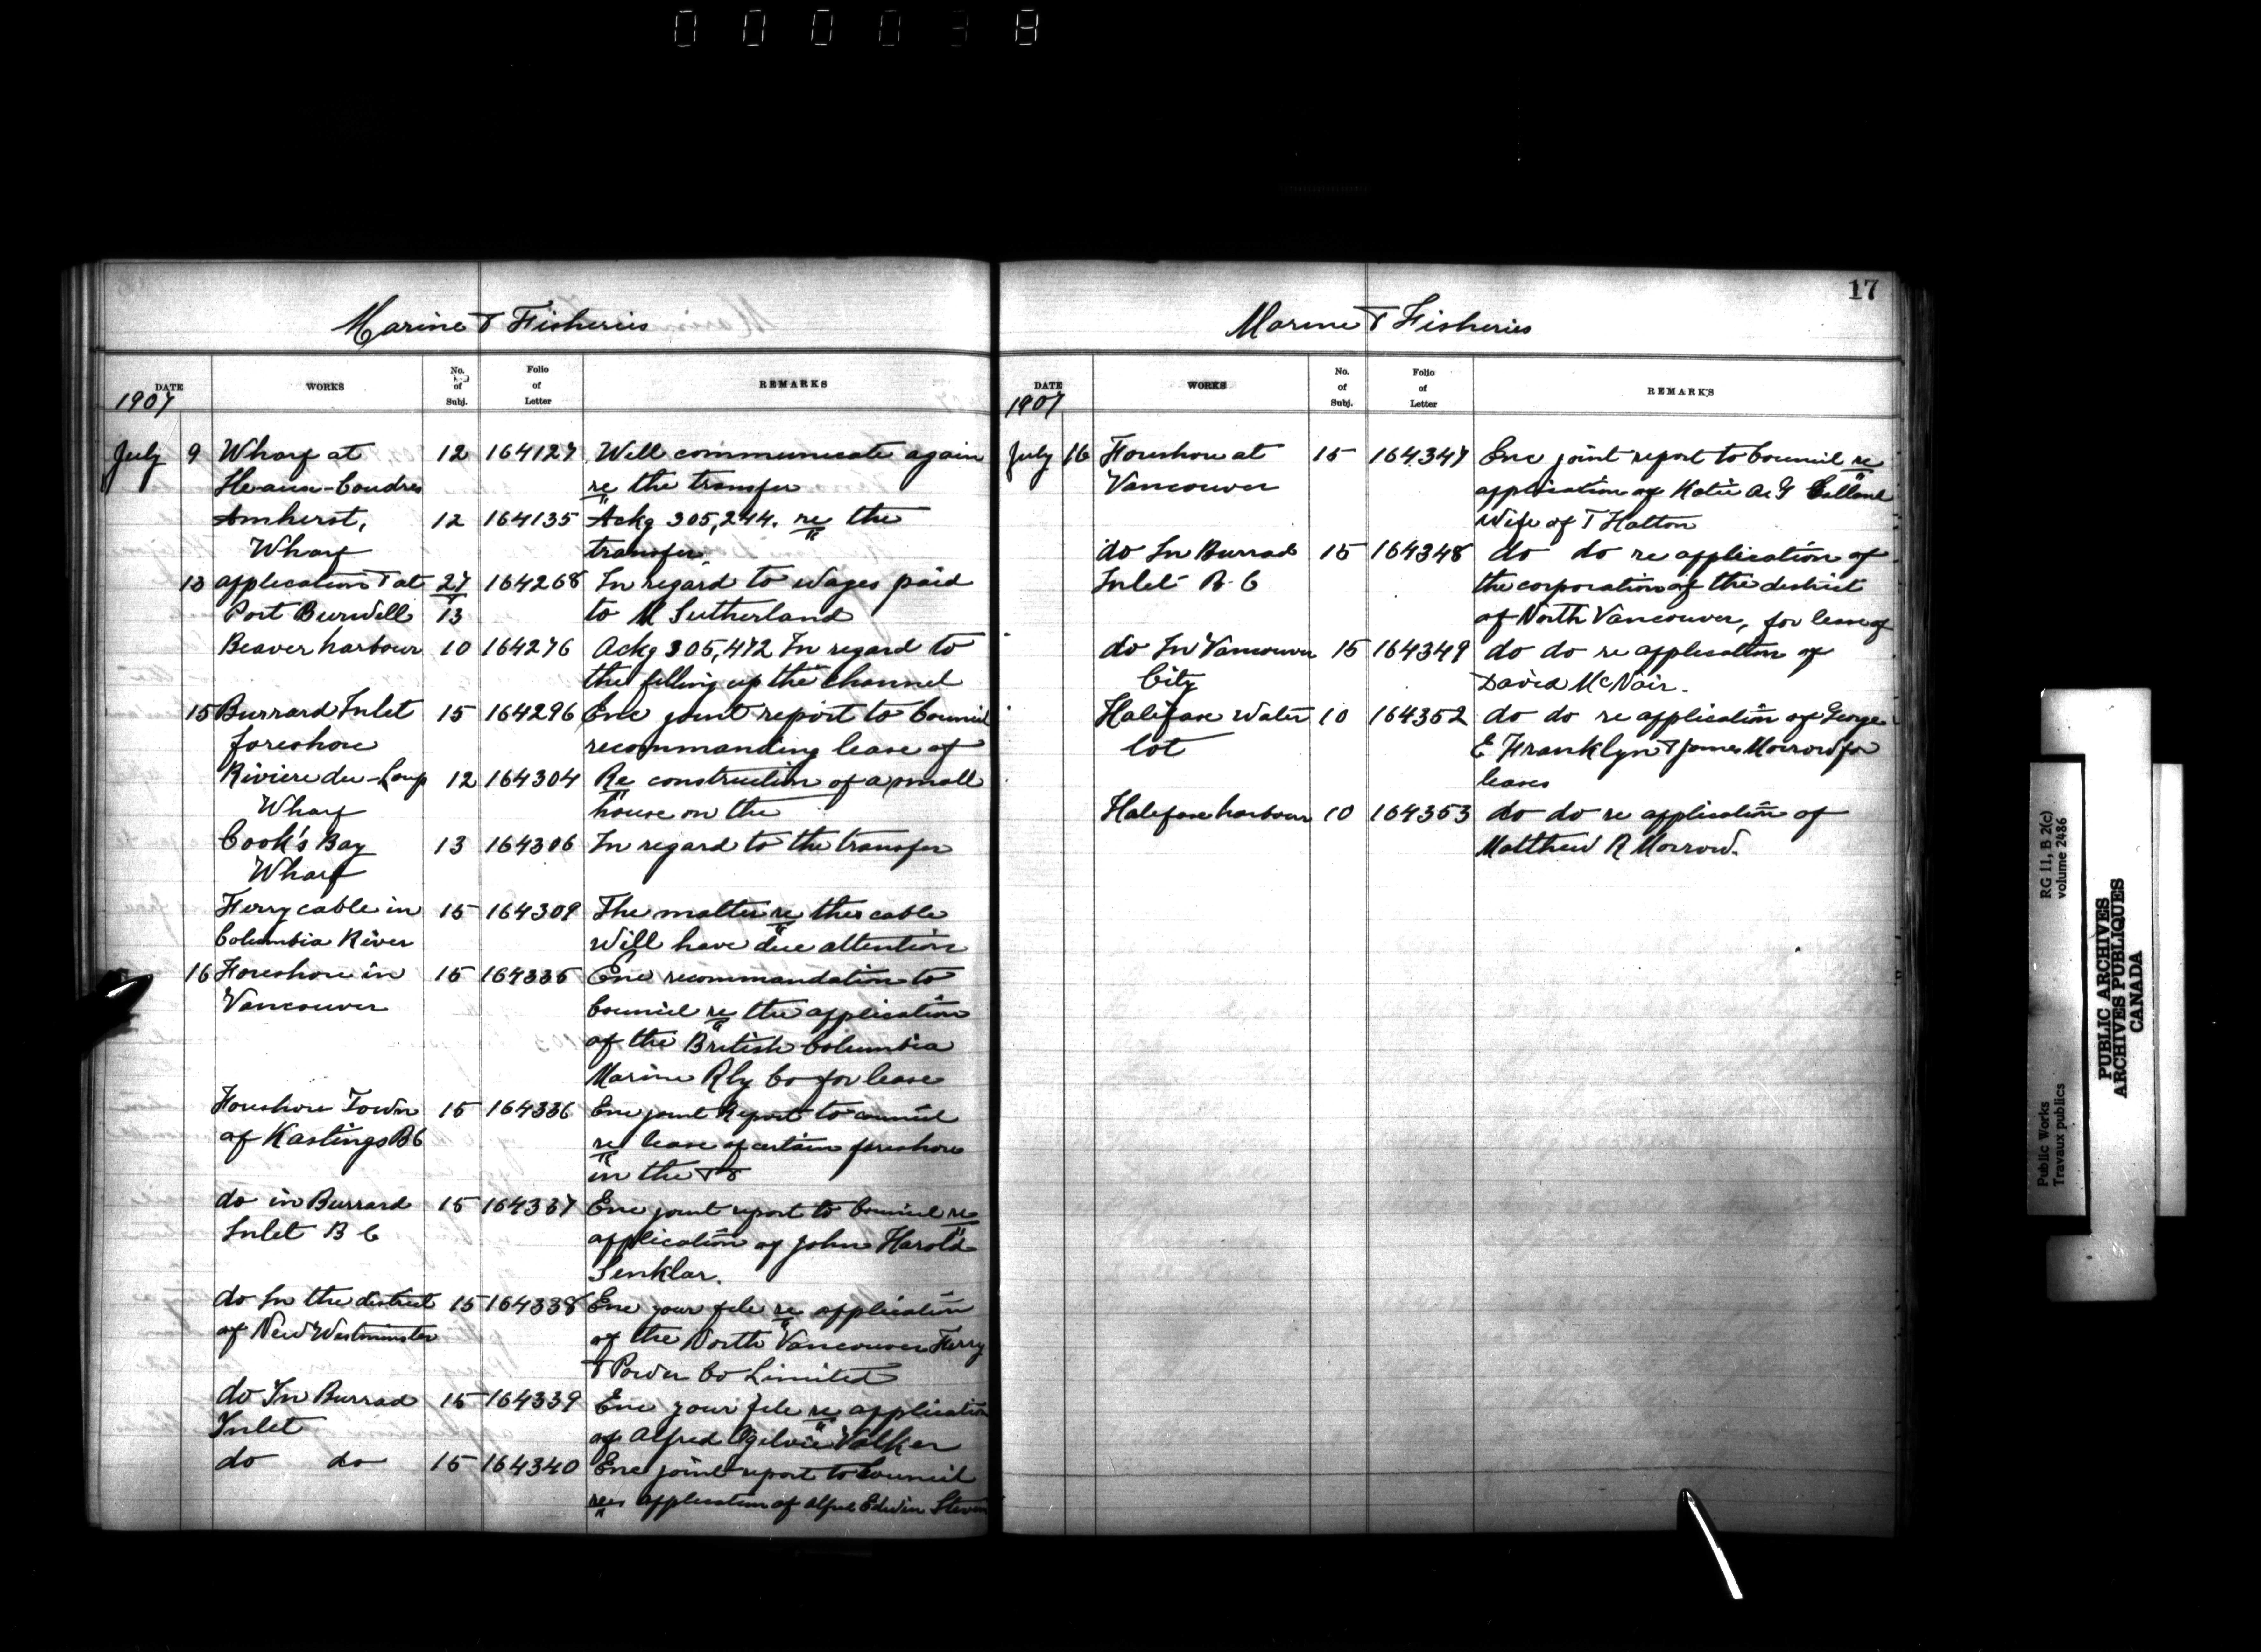 000038
17
Marine & Fisheries
DATE WORKS No. of Subj. Folio of Letter REMARKS
1907
July 9 Wharf at 12 164127 Will communicate again
Ile-aux-Coudres re the transfer
Amherst, 12 164135 Ackg 305,244. re the
Wharf transfer
13 application & at 27 164268 In regard to wages paid
Port Burwell 13 to M Sutherland
Beaver harbour 10 164276 Ackg 305,472 In regard to
the filling up the channel
15 Burrard Inlet 15 164296 Enc joint report to Council
foreshore recommanding lease of
Riviere du-Loup 12 164304 Re construction of a small
Wharf house on the
Cook's Bay 13 164306 In regard to the transfer
Wharf
Ferry cable in 15 164309 The matter re the cable
Columbia River Will have due attention
16 Foreshore in 15 164335 Enc recommandation to
Vancouver Council re the application
of the British Columbia
Marine Rly Co for lease
Foreshore Town 15 164336 Enc joint Report to council
of Hastings BC re lease of certain foreshore
in the
do in Burrard 15 164337 Enc joint report to Council re
Inlet B C application of John Harold
Senklar.
do In the district 15 164338 Enc your file re application
of New Westminster of the North Vancouver Ferry
& Power Co Limited
do In Burrad 15 164339 Enc your file re application
Inlet of Alfred Ogilvie Walker
do do 15 164340 Enc joint report to Council
re application of Alfred Edwin
Marine & Fisheries
DATE WORKS No. of Subj. Folio of Letter REMARKS
1907
July 16 Foreshore at 15 164347 Enc joint report to Council re
Vancouver application of Katie
Wife of T Halton
do In Burrad 15 164348 do do re application of
Inlet B-C the corporation of the district
of North Vancouver, for lease of
do In Vancouver 15 164349 do do re application of
City David McNair.
Halifax Water 10 164352 do do re application of George
lot E Franklyn & James Morrow for
leases
Halifax harbour 10 164353 do do re application of
Matthew R Morrow.
Public Works RG 11, B 2(c)
Travaux publics volume 2486
PUBLIC ARCHIVES
ARCHIVES PUBLIQUES
CANADA